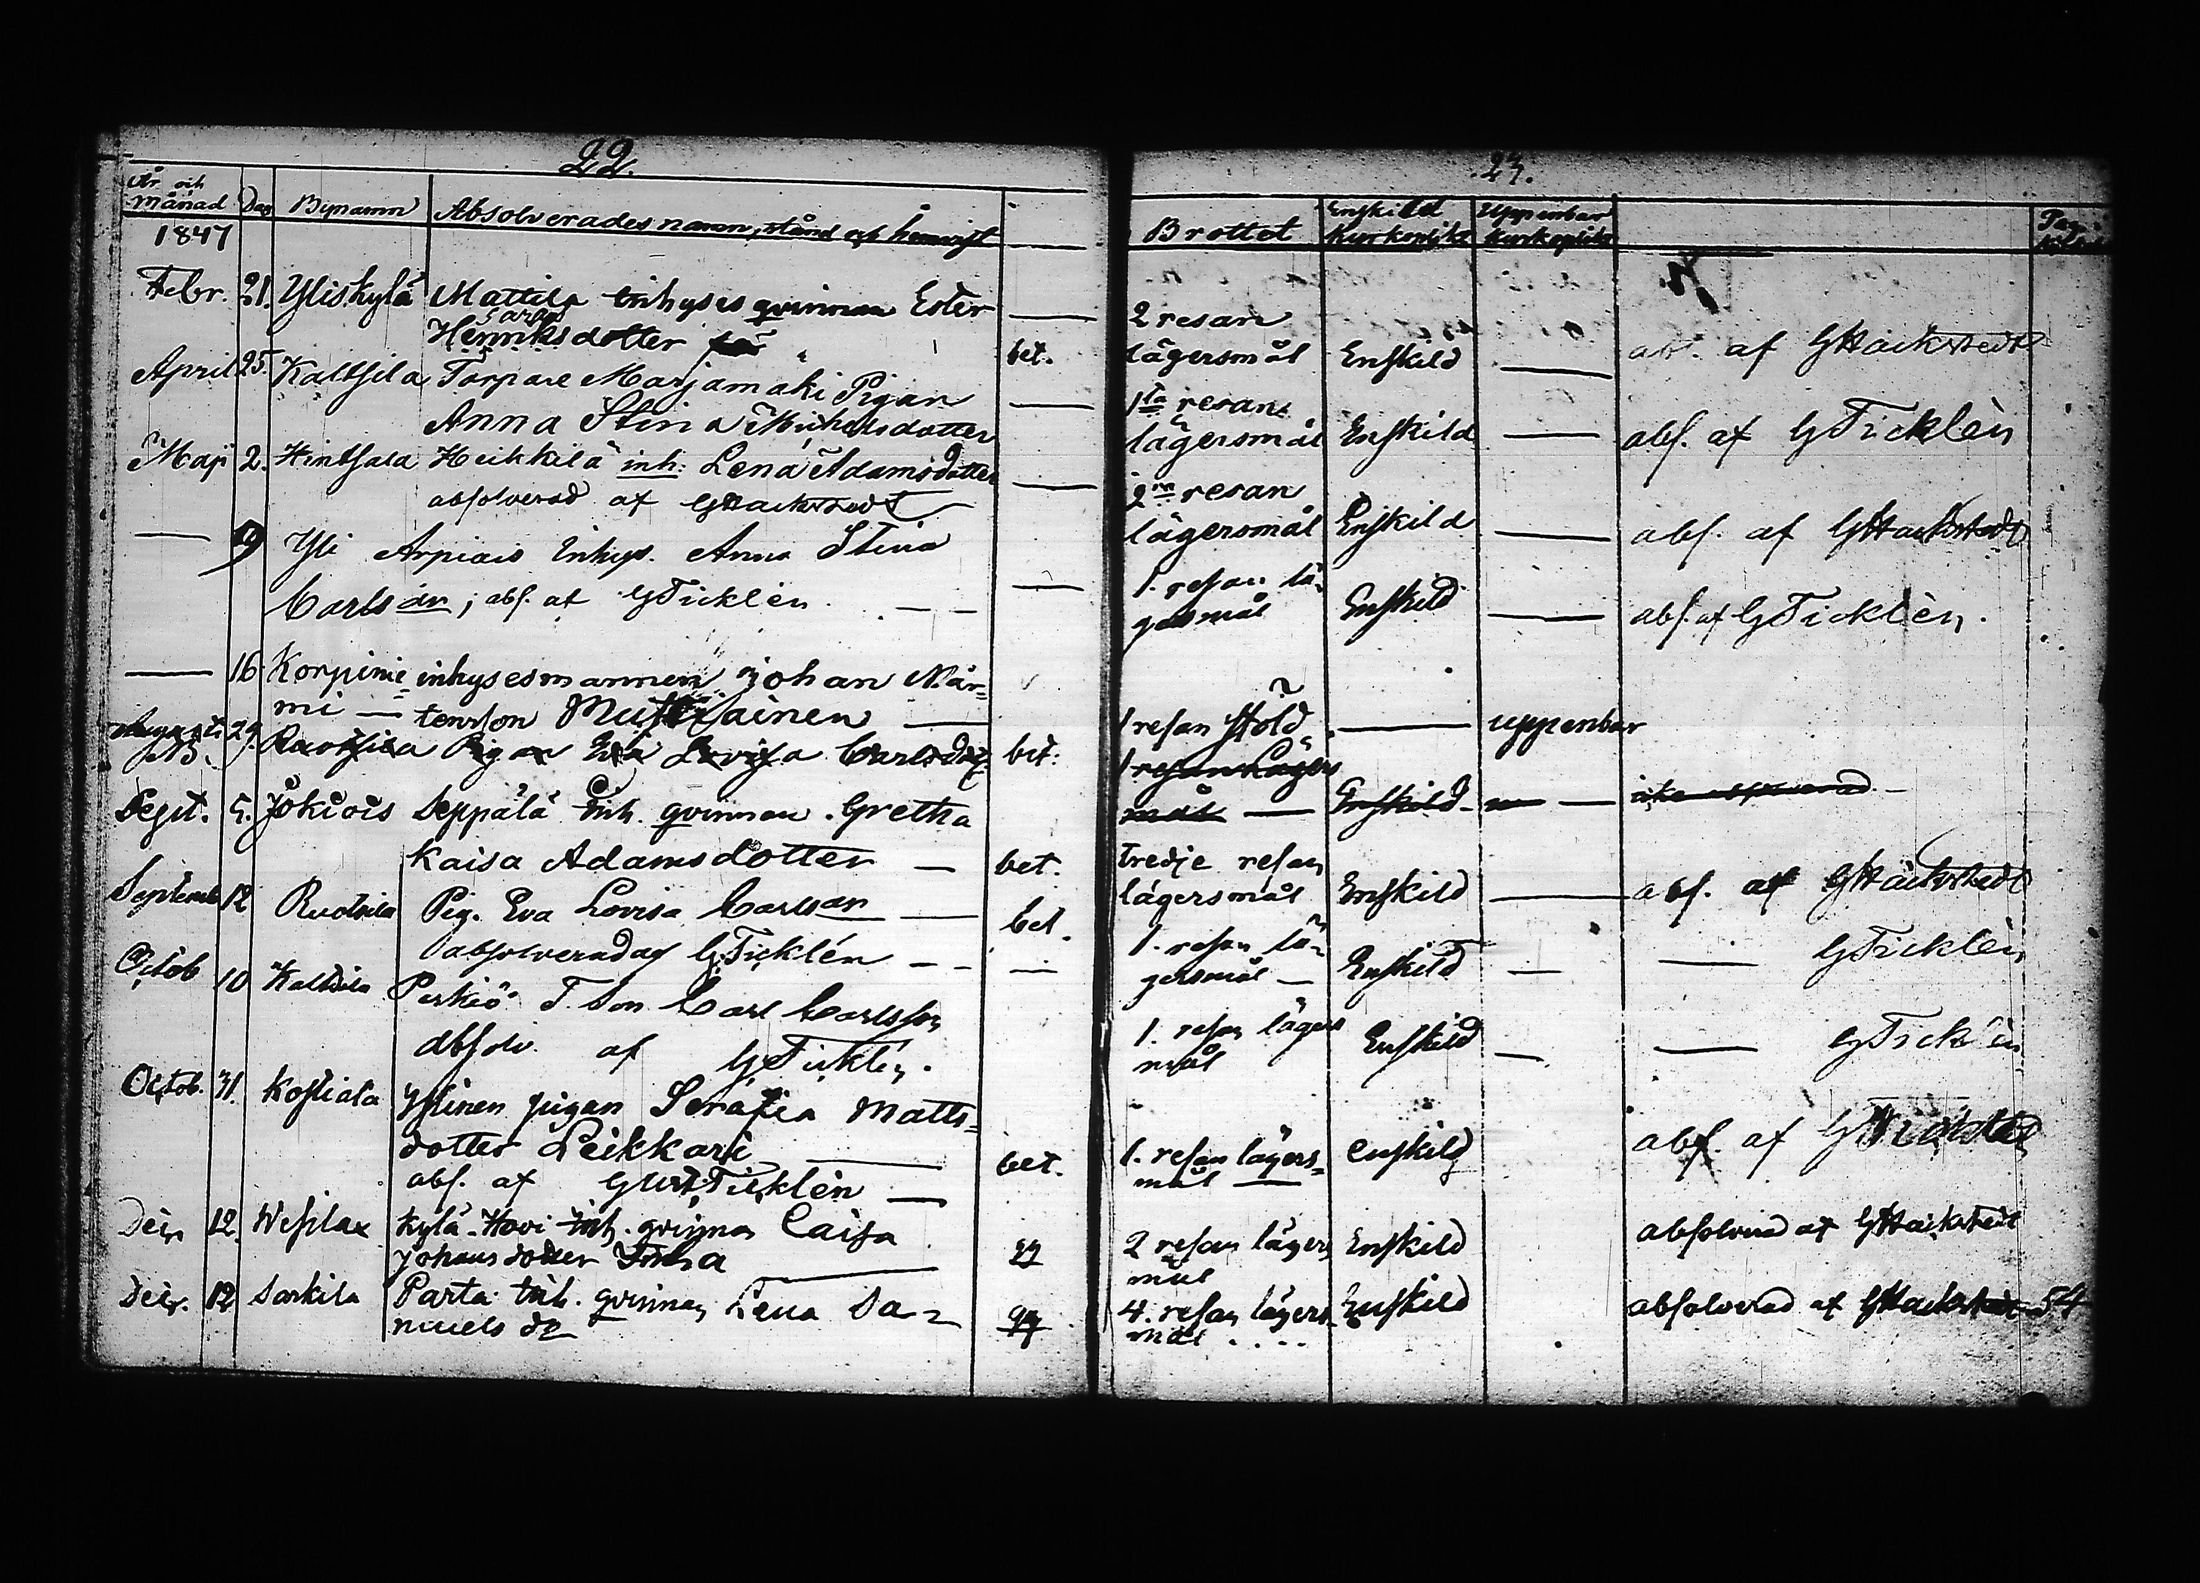 22.
År och månad Dag Bynamn Absolverades namn, stånd och hemvist
1847
Febr. 21. Yliskylä Mattila inhyses qvinnan Ester
Henriksdotter
bet.
April 25. Kaltsila Torpare Marjamäki Pigan
Anna Stina Michelsdotter
Maji 2. Hintsala Heikkilä inh: Lena Adamsdotter
absolverad af GHackstedt
9 Yli Arpiais Inhys. Anna Stina
Carlsdr; abs. af GTicklén
16 Korpinie= inhysesmannen Johan Mår=
mi tensson
Augusti 29. Pigan Eva Lovisa Carlsdr bet:
Sept. 5. Jokiois Seppälä Inh. qvinnan Gretha
Kaisa Adamsdotter bet.
Septemb 12 Ruotsila Pig. Eva Lovisa Carlsdr bet.
absolverad af GTicklén
Octob 10 Kaltsila Perkiö T. Son Carl Carlsson
absolv. af GTicklén.
Octob. 31. Kostiala Yllinen pigan Serafia Matts=
dotter Leikkari bet.
abs. af Gust. Ticklén
Decr 12. Wesilax kylä Hovi inh. qvinnan Caisa
Johansdotter
Decr. 12 Sarkila Parta inh. qvinnan Lena Sa=
muels dr
23.
Brottet Enskild Kyrkoplikt Uppenbar Kyrkoplikt
2 resan
lägersmål Enskild abs. af GHackstedt
1ta resan
lägersmål Enskild abs. af GTicklén
2n resan
lägersmål Enskild abs. af GHackstedt
1. resan lä=
gersmål Enskild abs. af GTicklén.
1 resan stöld uppenbar
1 resan Lägers
mål Enskild icke absolverad
tredje resan
lägersmål Enskild abs. af GHackstedt
1. resan lä=
gersmål Enskild GTicklén
1. resan lägers
mål Enskild GTicklén
1. resan lägers=
mål enskild abs. af
2 resan lägers
mål Enskild absolverad af GHackstedt
4. resan lägers
mål Enskild absolverad af GHackstedt 54